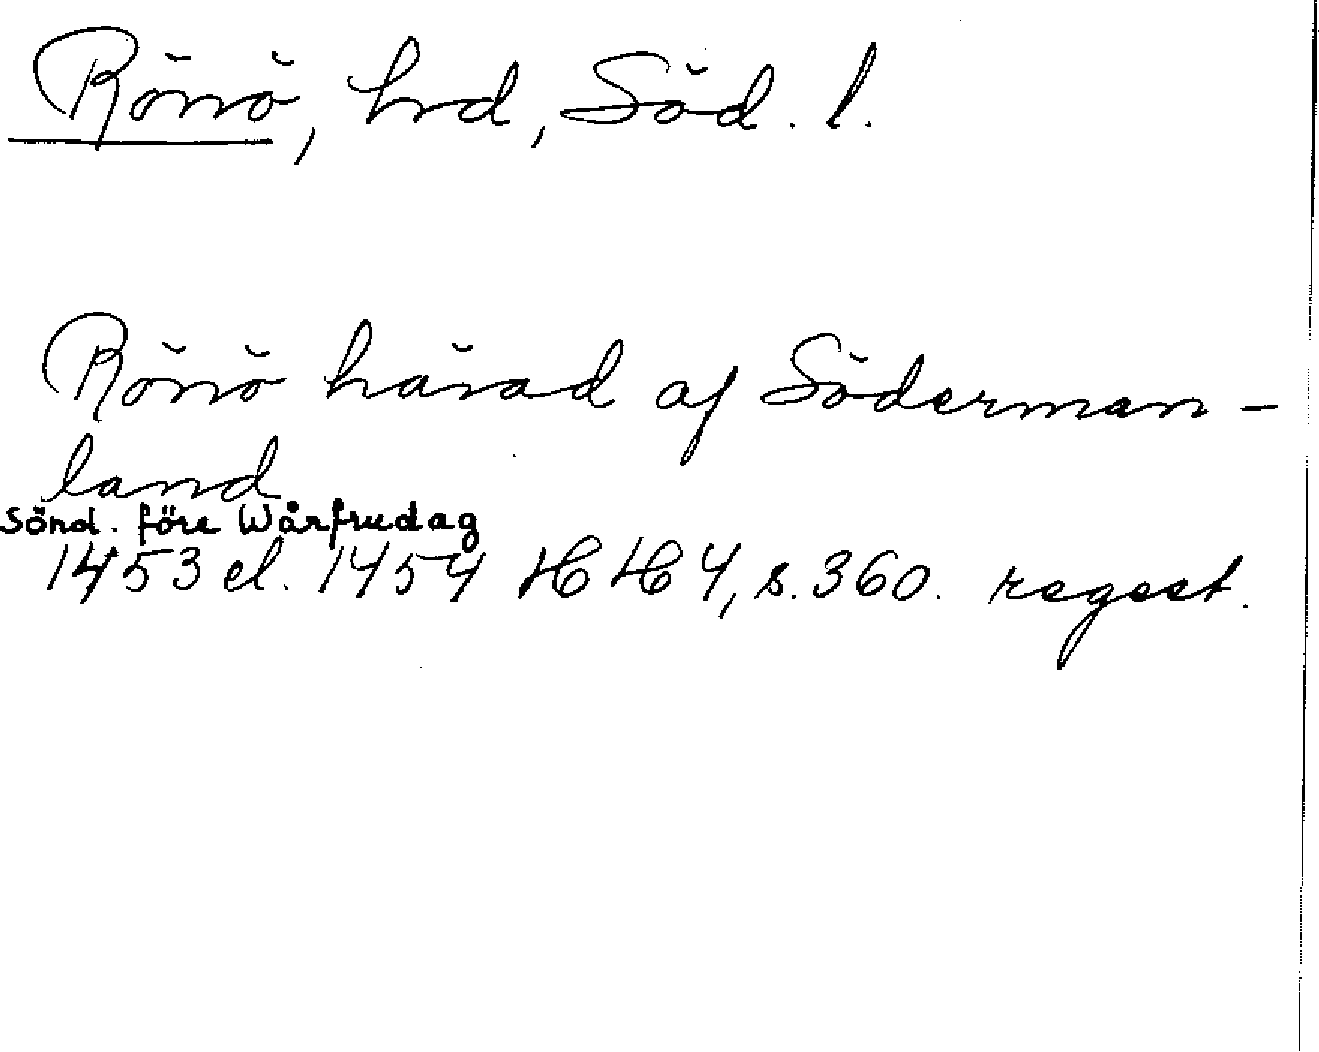 Rönö, hrd, Söd. l.
Rönö härad af Söderman-
land
Sönd. före Wårfrudag
1453 el. 1454 HH 4, s. 360. regest.